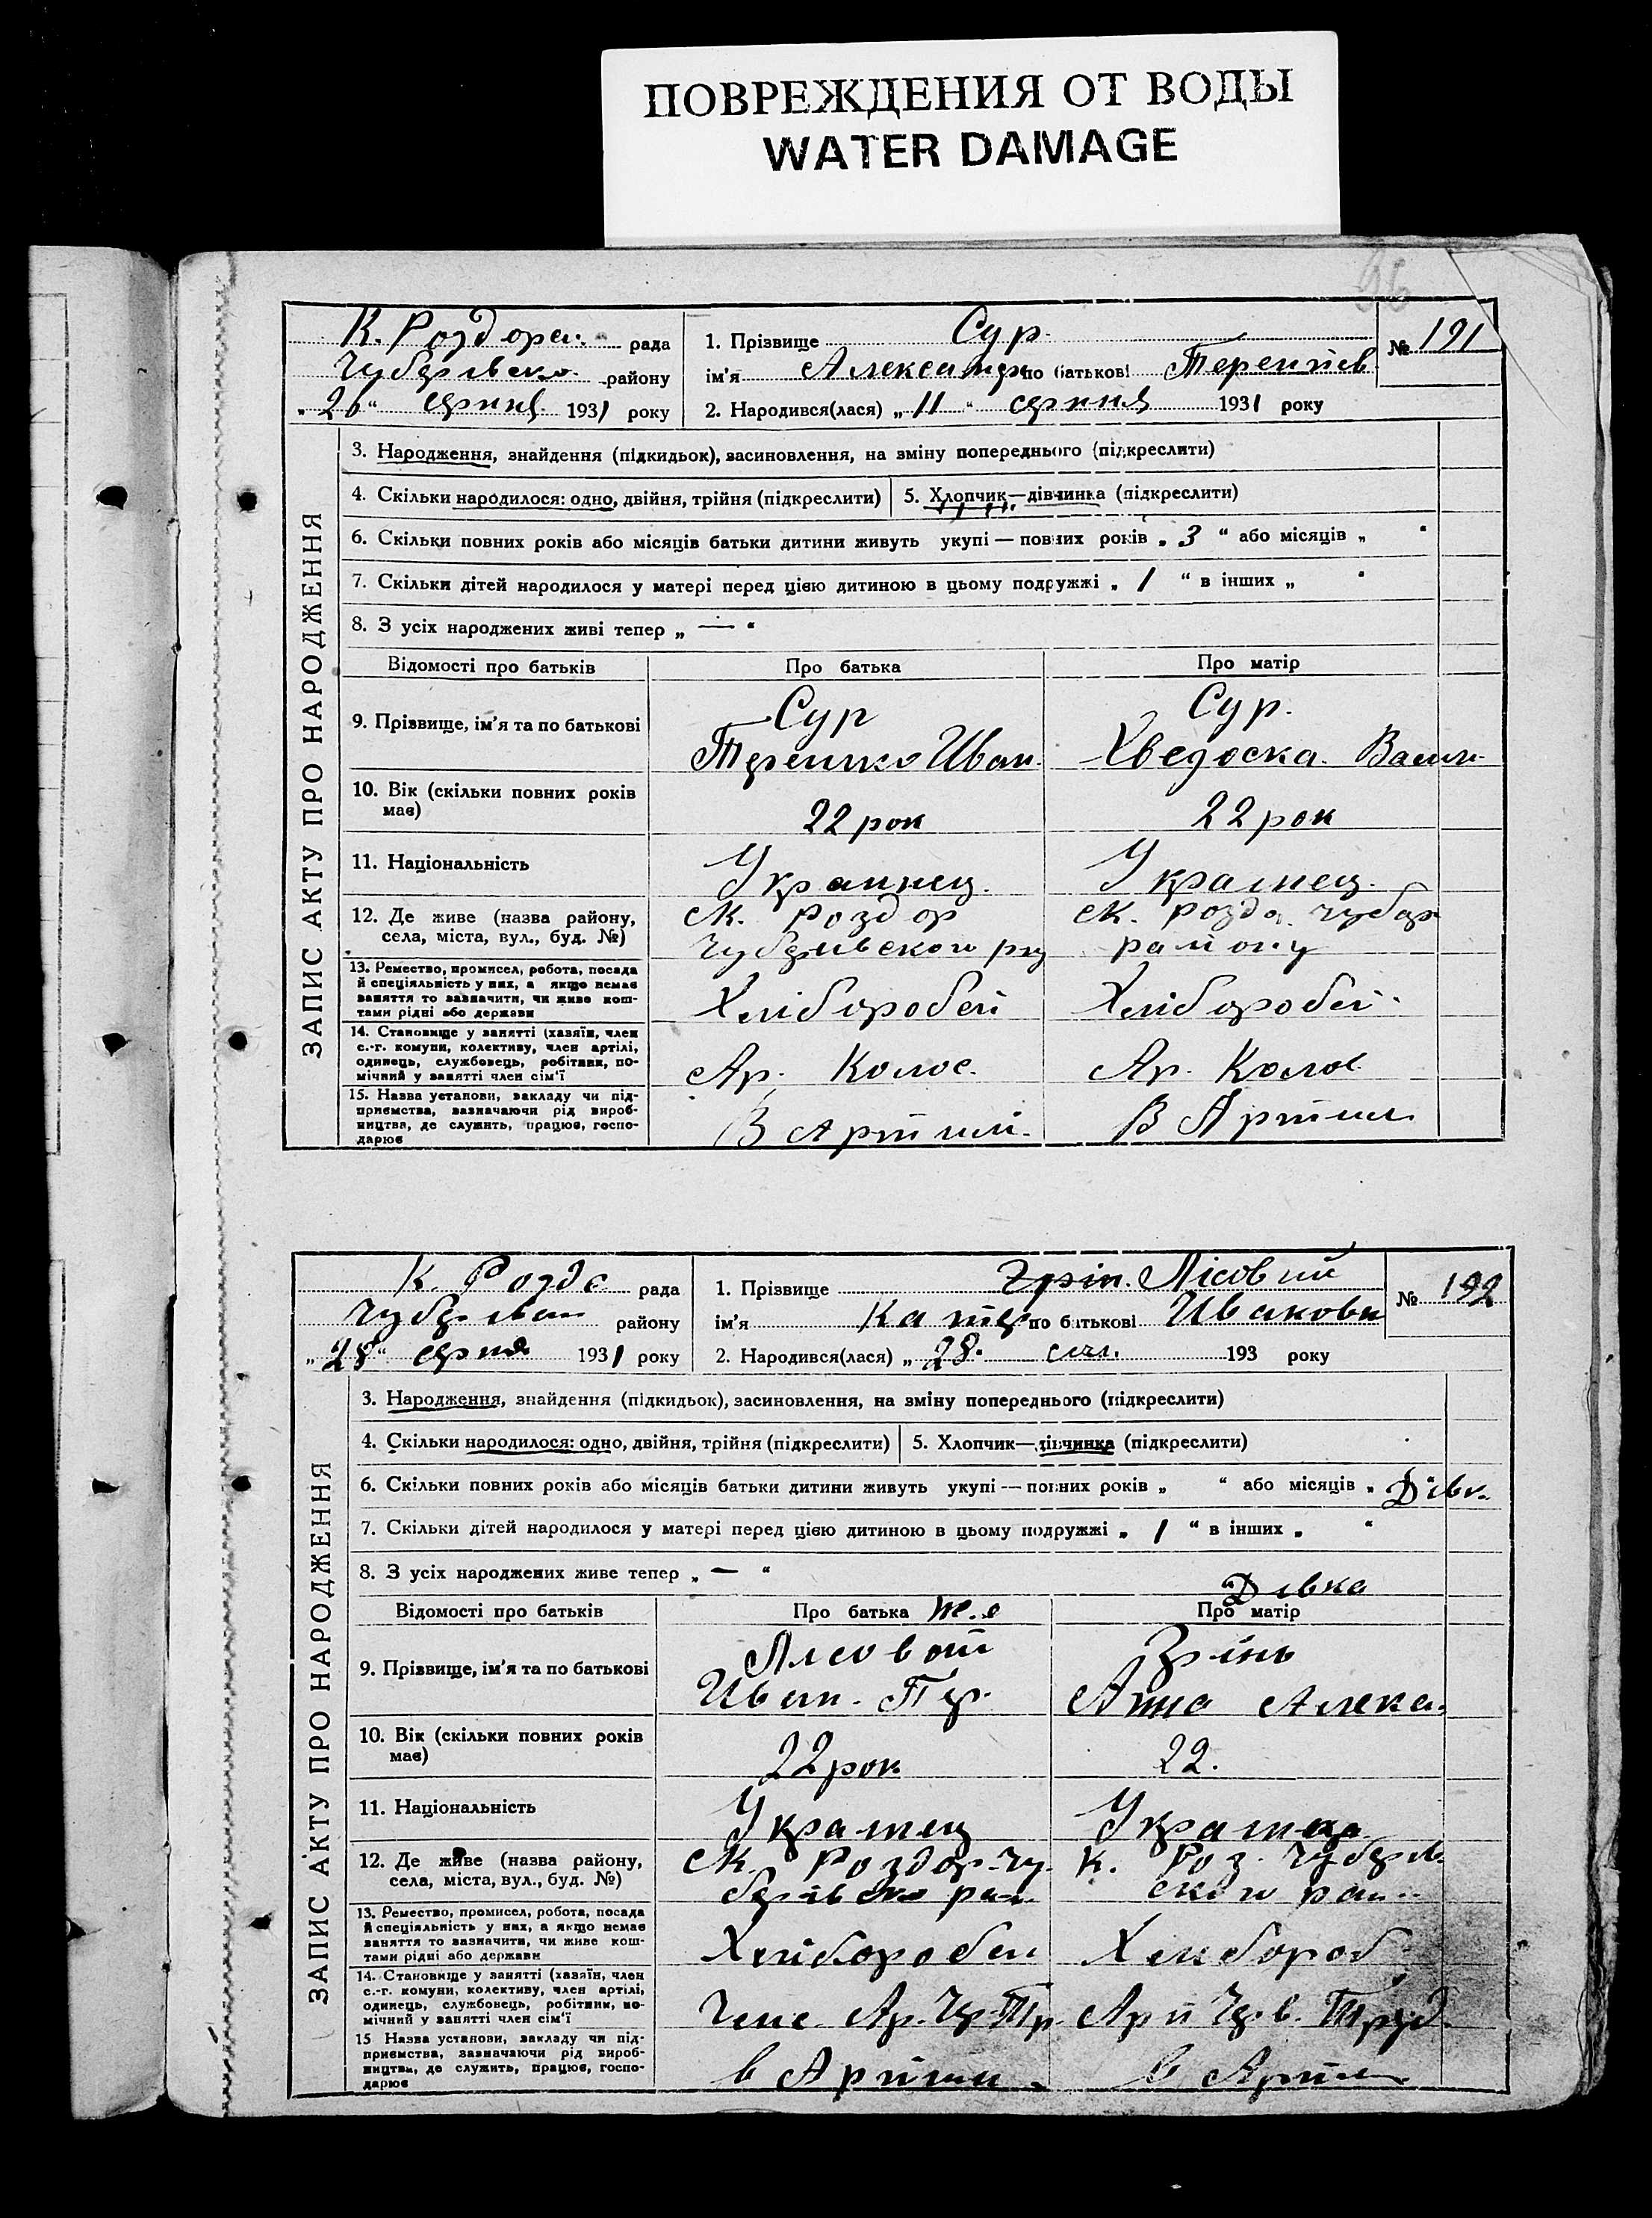 ПОВРЕЖДЕНИЯ ОТ ВОДЫ
WATER DAMAGE
96
К. Роздори. рада
Чубарівсько району
"26" серпня 1931 року
1. Прізвище Сур.
ім'я Александр по батькові Терентіев.
2. Народився(лася) „11" серпня 1931 року
№ 191
ЗАПИС АКТУ ПРО НАРОДЖЕННЯ
3. Народження, знайдення (підкидьок), засиновлення, на зміну попереднього (підкреслити)
4. Скільки народилося: одно, двійня, трійня (підкреслити) 5. Хлопчик—дівчинка (підкреслити)
6. Скільки повних років або місяців батьки дитини живуть укупі — повних років „3" або місяців „ "
7. Скільки дітей народилося у матері перед цією дитиною в цьому подружжі „1" в інших „ "
8. З усіх народжених живі тепер „—"
Відомості про батьків Про батька Про матір
9. Прізвище, ім'я та по батькові
Сур Сур.
Терешко Иван. Хведоска Васил.
10. Вік (скільки повних років має)
22 рок 22 рок
11. Національність
Украинец. Украинец.
12. Де живе (назва району, села, міста, вул., буд. №)
К. Роздор К. Роздо. Чубар
Чубарівского району
13. Ремество, промисел, робота, посада й спеціяльність у них, а якщо немає заняття то зазначити, чи живе коштами рідні або держави
Хліборобей Хліборобей.
14. Становище у занятті (хазяїн, член с.-г. комуни, колективу, член артілі, одинець, службовець, робітник, помічний у занятті член сім'ї
Ар. Колос. Ар. Колос.
15. Назва установи, закладу чи підприємства, зазначаючи рід виробництва, де служить, працює, господарює
В Артилі. В Артили
К. Роздо рада
району
„28" серпня 1931 року
1. Прізвище Грін. Лісовий
ім'я Катер по батькові Ивановн
2. Народився(лася) „28" 193 року
№ 192
ЗАПИС АКТУ ПРО НАРОДЖЕННЯ
3. Народження, знайдення (підкидьок), засиновлення, на зміну попереднього (підкреслити)
4. Скільки народилося: одно, двійня, трійня (підкреслити) 5. Хлопчик—дівчинка (підкреслити)
6. Скільки повних років або місяців батьки дитини живуть укупі — повних років „ " або місяців „ Дівк.
7. Скільки дітей народилося у матері перед цією дитиною в цьому подружжі „1" в інших „ "
8. З усіх народжених живе тепер „—"
Дівка
Відомості про батьків Про батька Про матір
9. Прізвище, ім'я та по батькові
Лісовий Грінь
Иван. Пер. Анна Алекса.
10. Вік (скільки повних років має)
22 рок 22.
11. Національність
Украинец Украинец
12. Де живе (назва району, села, міста, вул., буд. №)
К. Роздор. Чу- К. Роз. Чубарів-
барівско рай. ского рай.
13. Ремество, промисел, робота, посада й спеціяльність у них, а якщо немає заняття то зазначити, чи живе коштами рідні або держави
Хліборобей Хлибороб
14. Становище у занятті (хазяїн, член с.-г. комуни, колективу, член артілі, одинець, службовець, робітник, помічний у занятті член сім'ї
Член Ар. Чер. Тр. Арті Черв. Труд.
15 Назва установи, закладу чи підприємства, зазначаючи рід виробництва, де служить, працює, господарює
в Артили в Артил